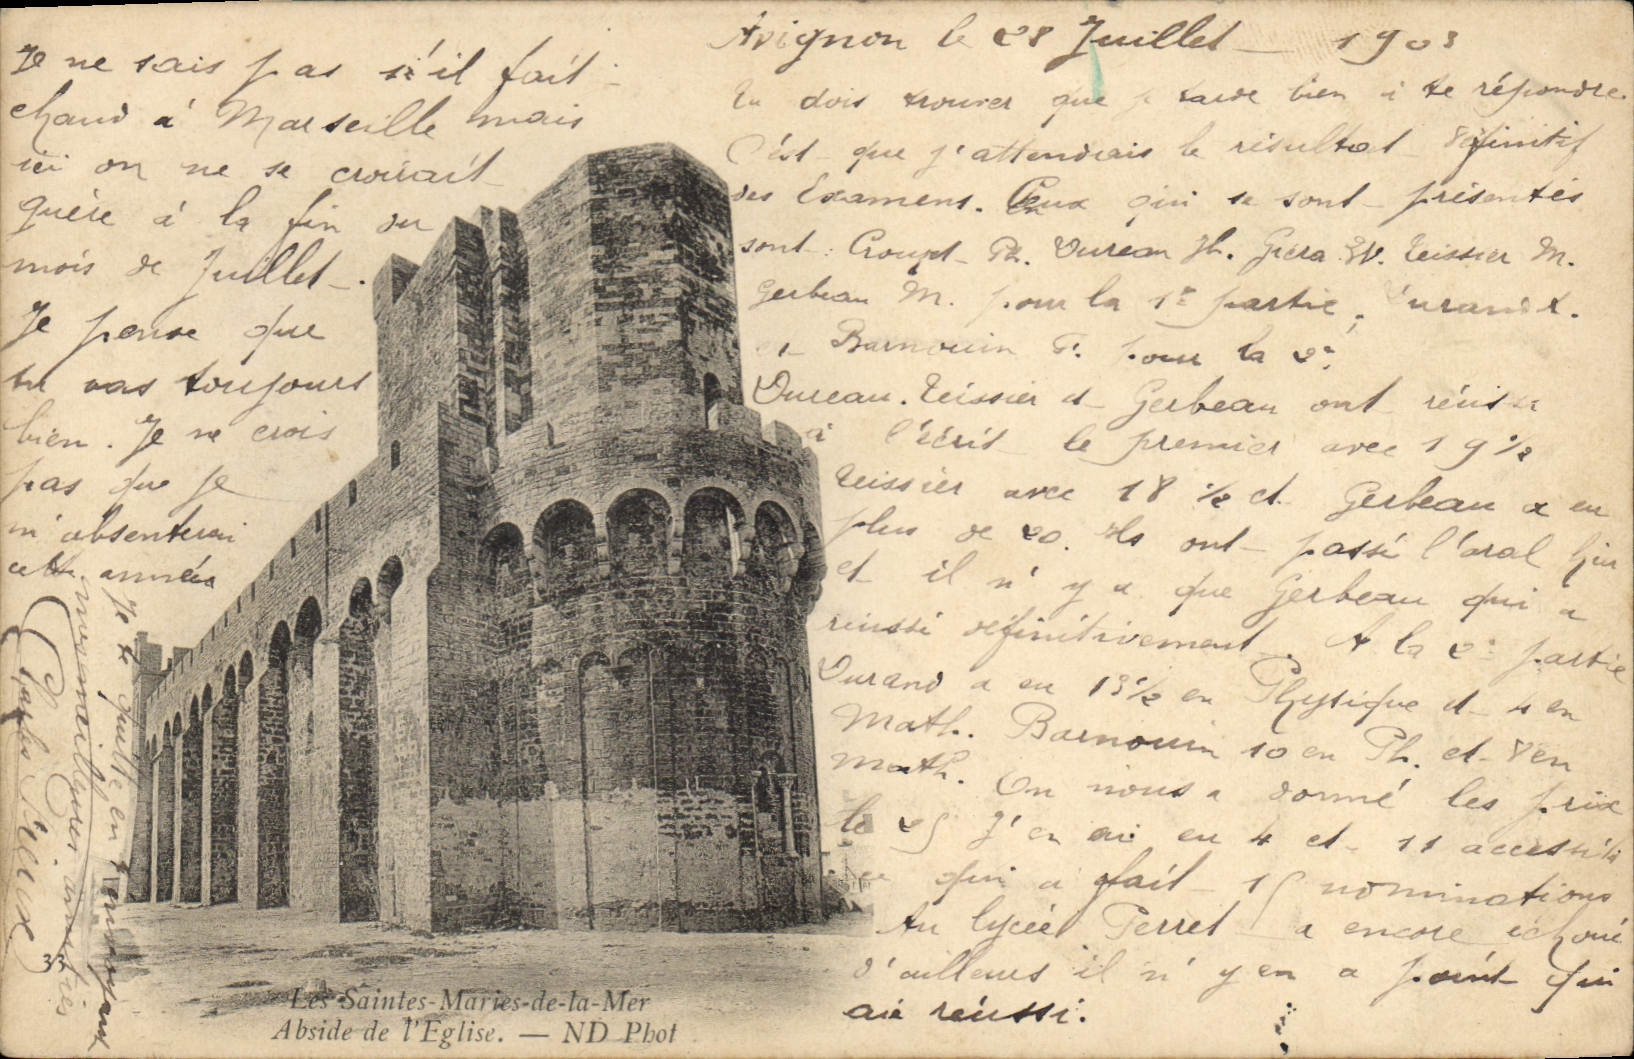 Avignon le 28 Juillet 1903
Tu dois trouver que je tarde bien à te répondre.
C'est que j'attendrais le résultat définitif
des Examens. Ceux qui se sont présentés
sont : Ph. Dureau Jh. Giéra Teissier M.
Gerbeau M. pour la 1e partie, Durand
et Barnouin pour la 2e.
Dureau. Teissier et Gerbeau ont réussi
à l'écrit le premier avec 19 ½
Teissier avec 18 ½ et Gerbeau a eu
plus de 20. Ils ont passé l'oral hier
et il n'y a que Gerbeau qui a
réussi définitivement. A la 2e partie
Durand a eu 13 ½ en Physique et 4 en
Math. Barnouin 10 en Ph. et 8 en
Math. On nous a donné les prix
le 25 J'en ai eu 4 et 11 accessits
ce qui a fait 15 nominations
Au lycée Perret a encore échoué
d'ailleurs il n'y en a point qui
aie réussi.
Je ne sais pas s'il fait
chaud à Marseille mais
ici on ne se croirait
guère à la fin du
mois de Juillet.
Je pense que
tu vas toujours
bien. Je ne crois
pas que je
m'absenterai
cette année
Je te quitte en t'envoyant
mes meilleures amitiés
Charles
33
Les Saintes-Maries-de-la-Mer
Abside de l'Eglise. — ND Phot